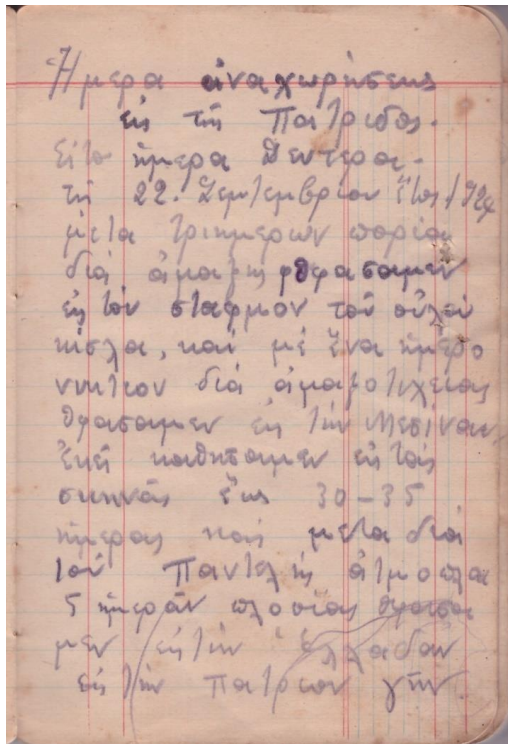 Ἡμερα ἀναχωρήσεως
εἰς τῆς Πατριδος.
Εἰτο ἡμερα Δευτερα.
τῆ 22. Σεμτεμβρίου Ἔτος 1924
μετα τριημερων πορία
διά ἁμαξης φθρασαμεν
εἰς τόν σταφμον τοῦ οὐλού
κισλα, καί μέ ἕνα ἡμερο
νυκτιον διά ἁμαξοτιχείας
θφασαμεν εἰς τήν Μεσίναν
ἐκεῖ καθησαμεν εἰς τάς
σκηνάς ἕως 30-35
ἡμερας καί μετα διά
τοῦ Παντελῆς ἀτμοπλοι
5 ἡμερῶν πλουσίας
μεν εἰς τήν ἑλλαδαν
εἰς τήν πατρεον γῆν